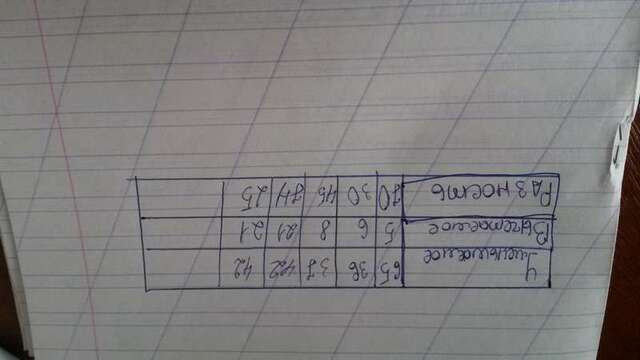 Уменьшаемое 65 36 37 42
Вычитаемое 5 6 8 21 21
Разность 70 30 45 25